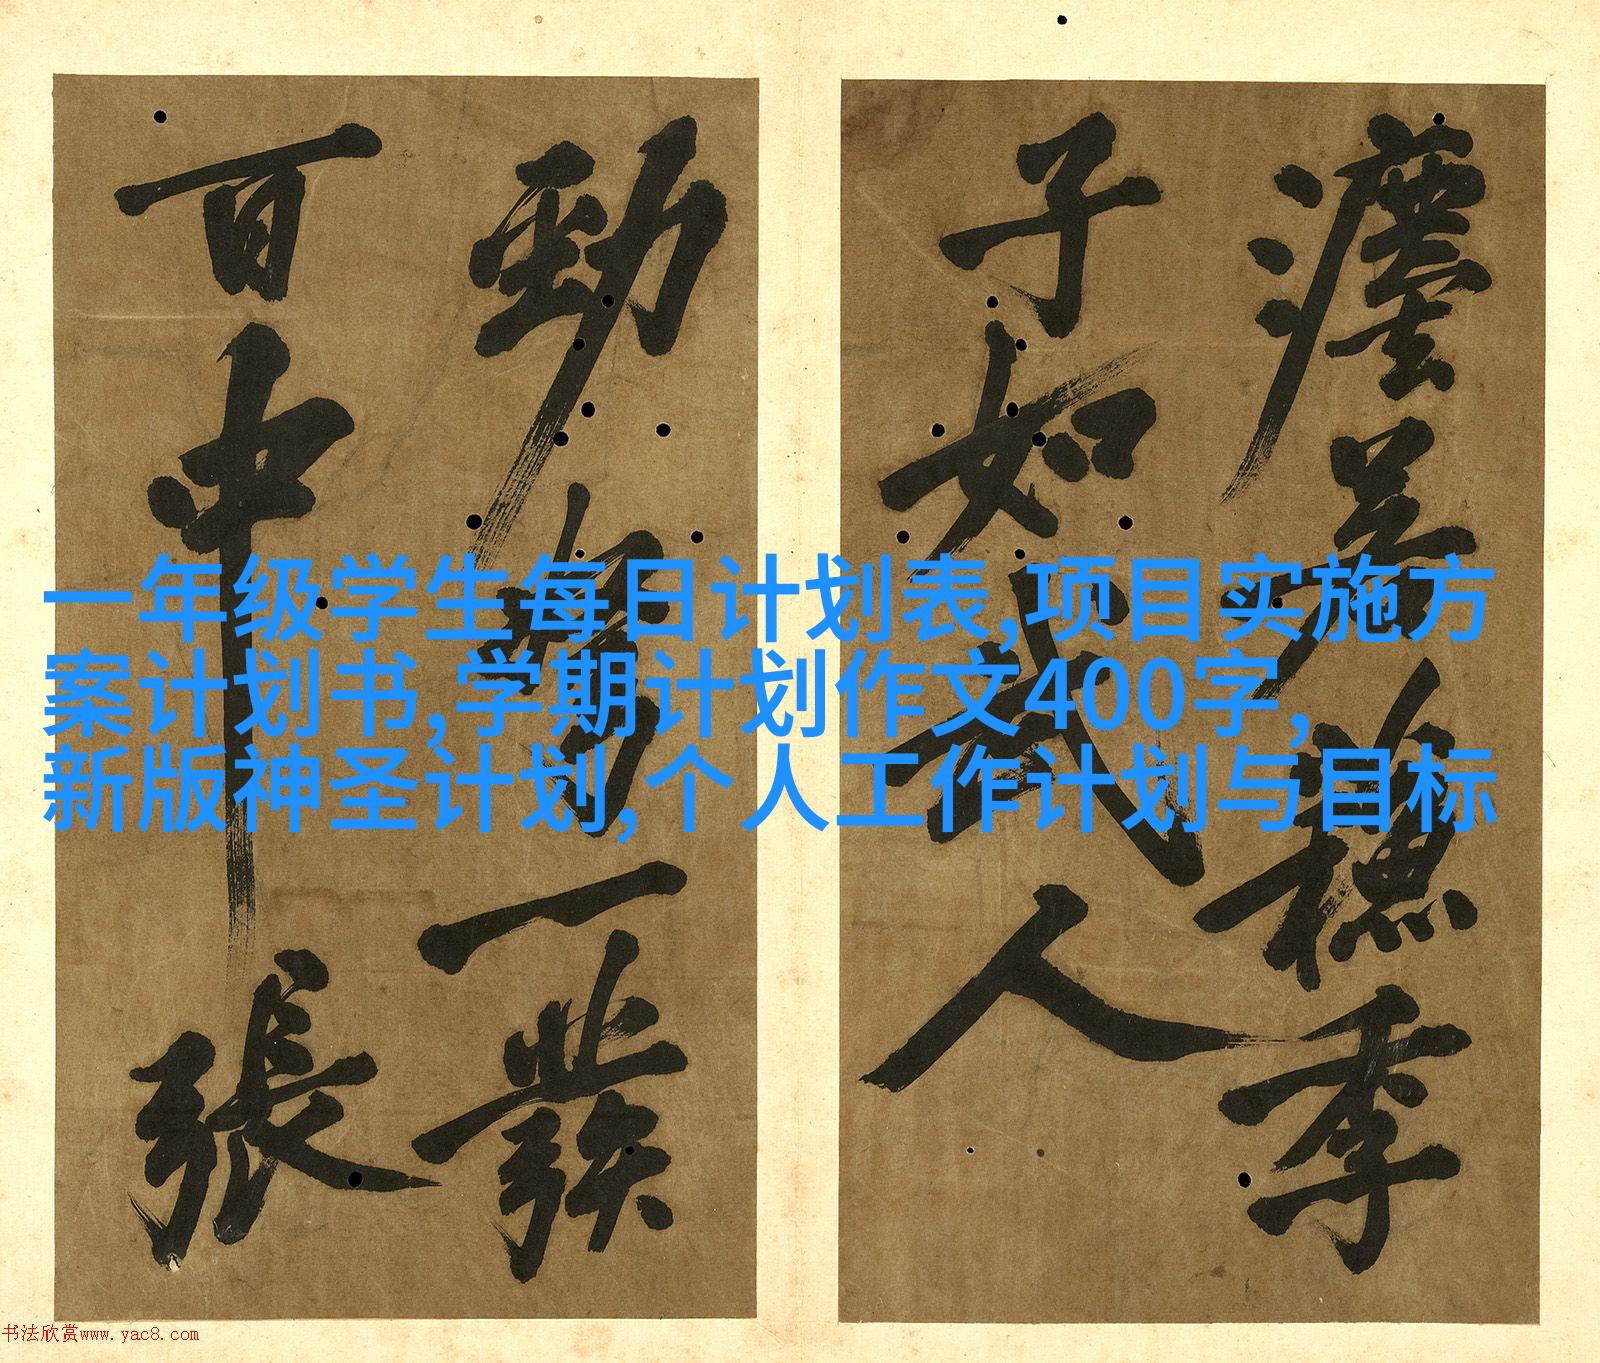 季
子如武人
勁一發
百中張
一年级学生每日计划表,项目实施方
案计划书,学期计划作文400字,
新版神圣计划,个人工作计划与目标
书法欣赏www.yac8.com